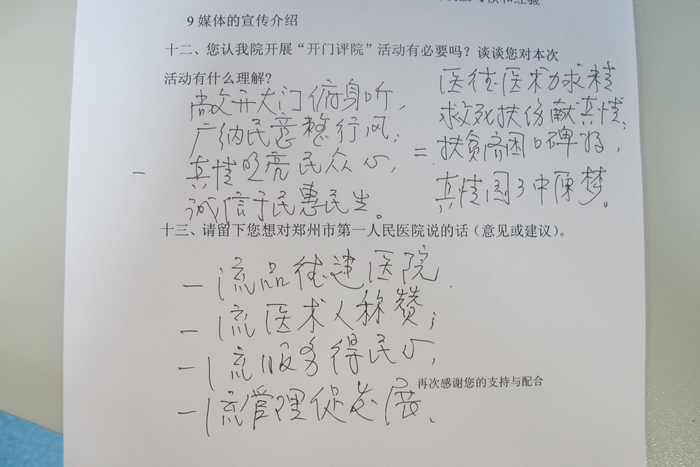 和经验
9 媒体的宣传介绍
十二、您认我院开展“开门评院”活动有必要吗？谈谈您对本次
活动有什么理解？
敞开大门俯身听，
广纳民意整行风；
一 真情照亮民众心，
诚信于民惠民生。
医德医术力求精
救死扶伤献真情；
二 扶贫济困口碑好，
真情圆了中原梦。
十三、请留下您想对郑州市第一人民医院说的话（意见或建议）。
一流品德建医院
一流医术人称赞；
一流服务得民心，
再次感谢您的支持与配合
一流管理促发展.